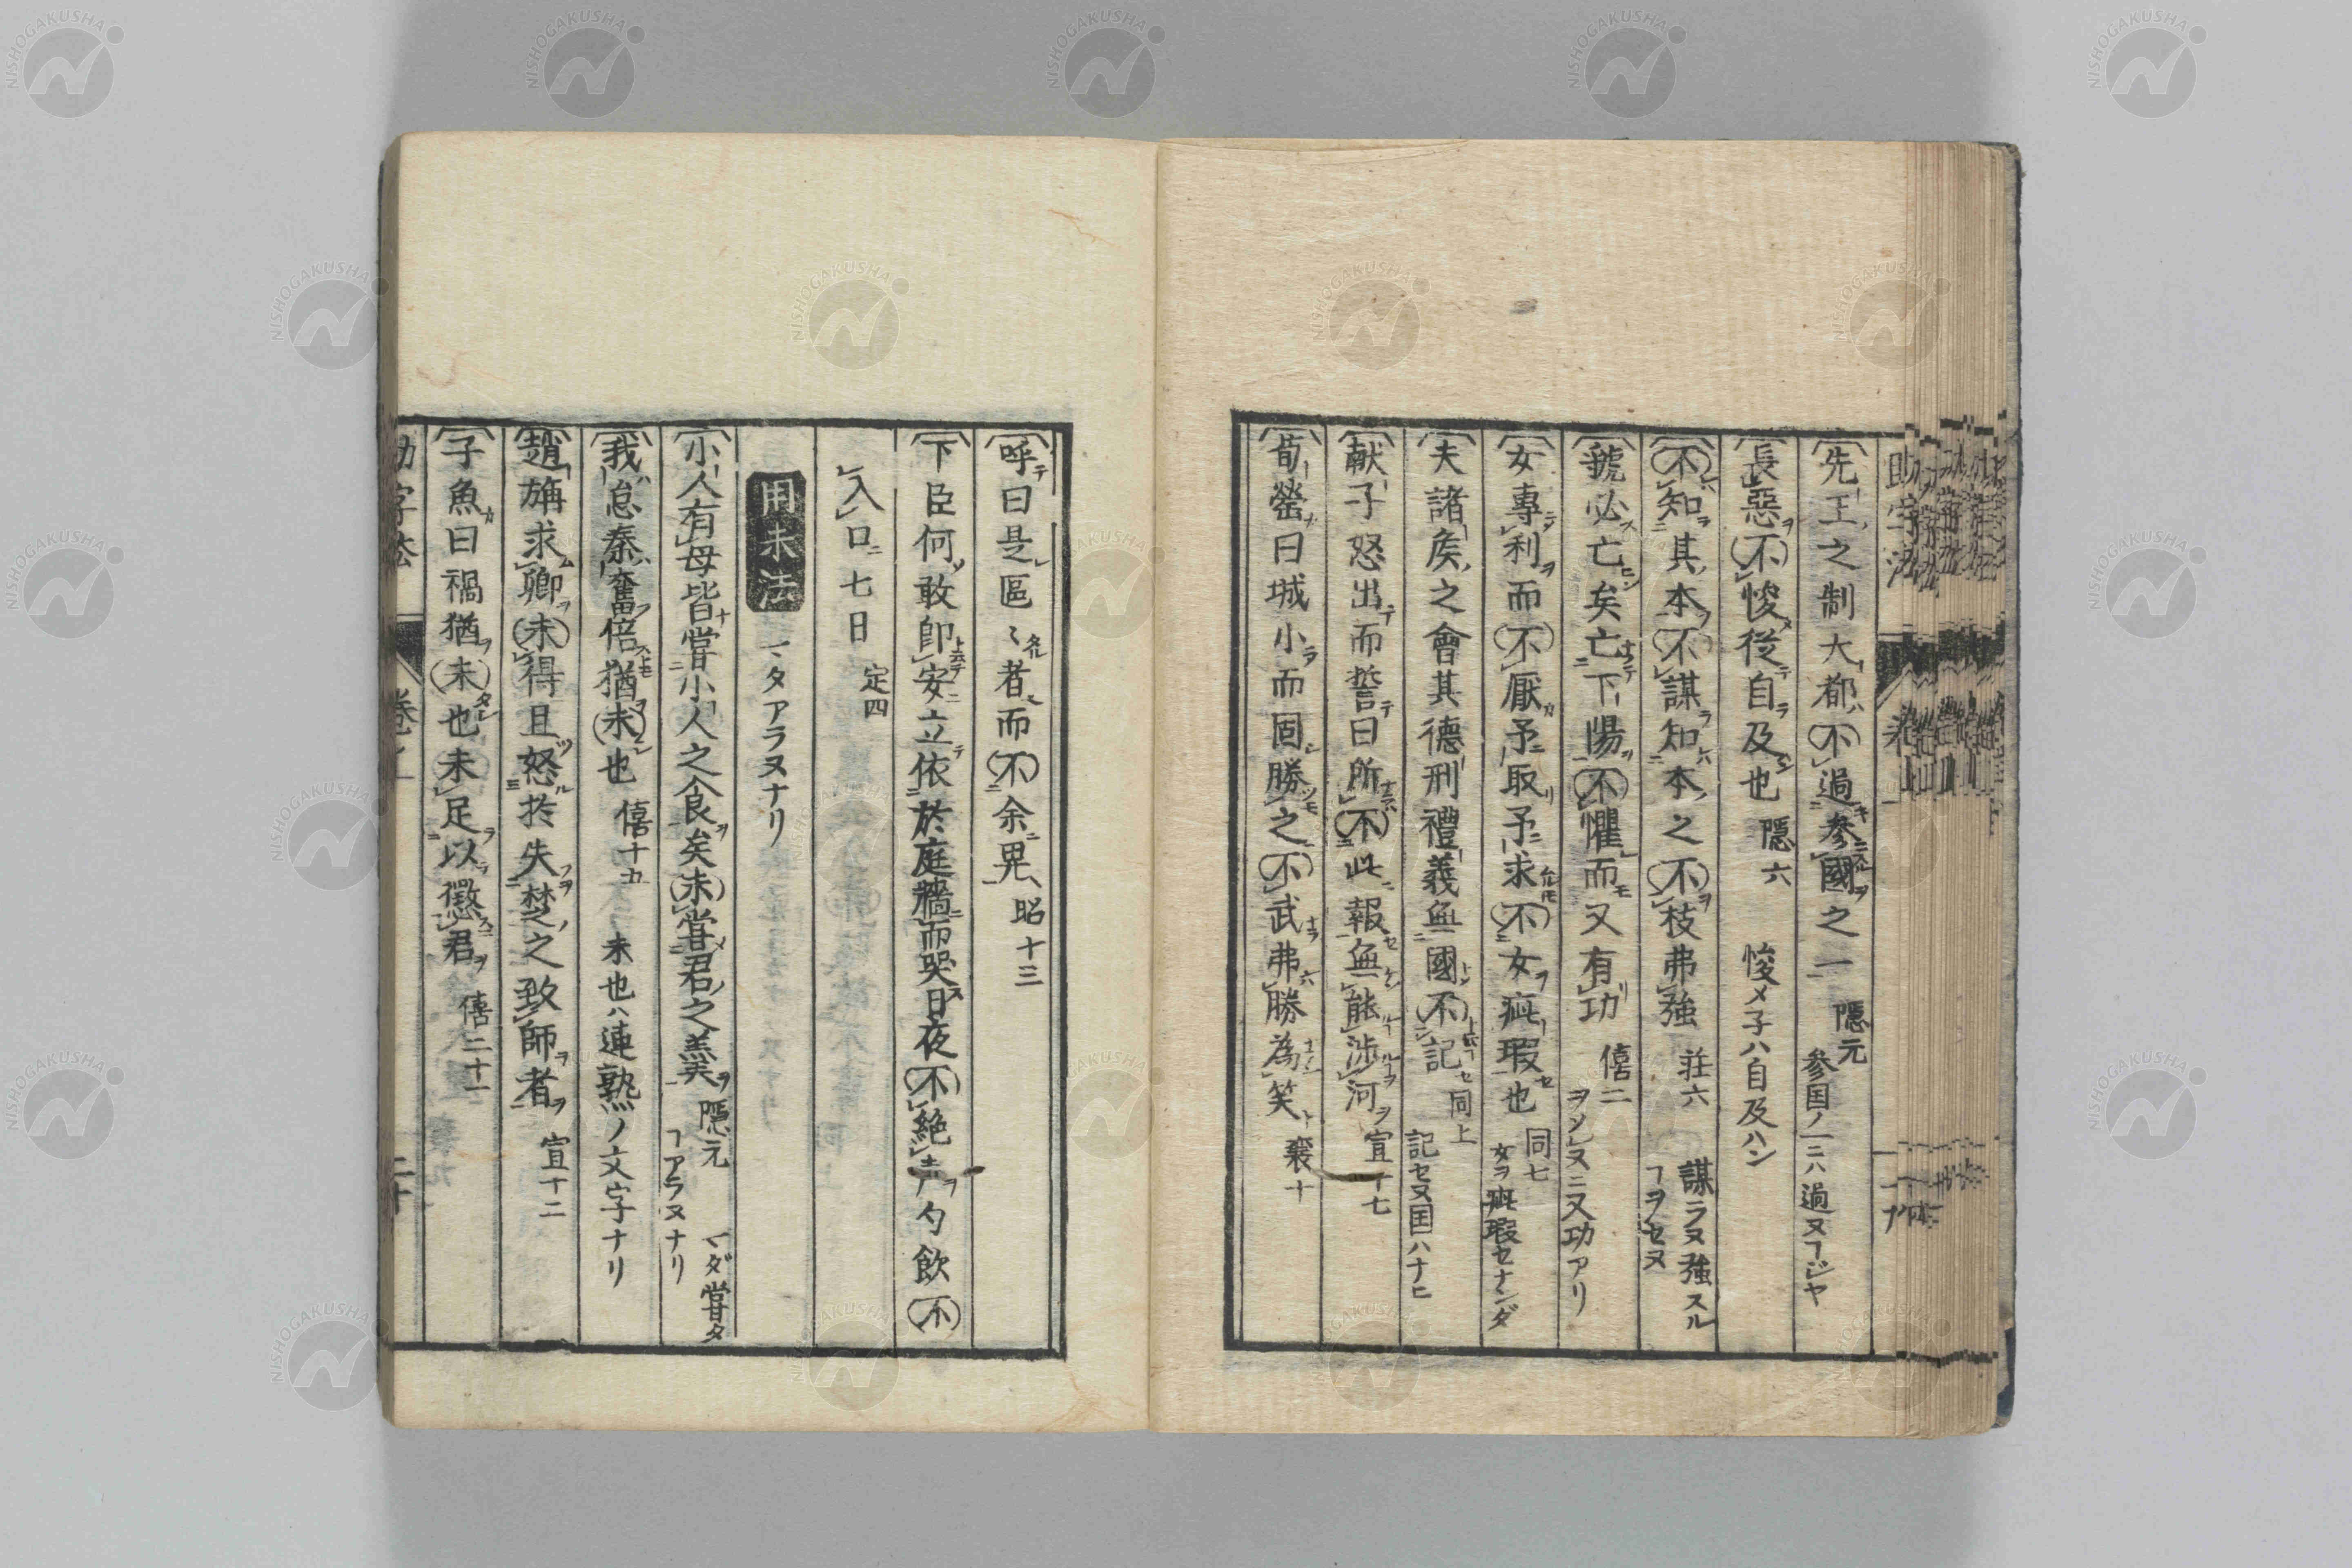 先王之制大都不過參國之一 隱元 参国ノ一ニハ過ヌヿジヤ
長惡不悛從自及也 隱六 悛メ子ハ自及ハン
不知其本不謀知本之不枝弗強 荘六 謀ラヌ強スルヿヲセヌ
虢必亡矣亡下陽不懼而又有功 僖二 ヲソレヌニ又功アリ
女專利而不厭予取予求不女疵瑕也 同七 女ヲ疵瑕セナンダ
夫諸矦之會其德刑禮義無國不記 同上 記セヌ国ハナヒ
献子怒出而誓曰所不此報無能涉河 宣十七
荀罃曰城小而固勝之不武弗勝為笑 襄十
呼曰是區〻者而不余畀 昭十三
下臣何敢卽安立依於庭牆而哭日夜不絶声勺飲不
入口七日 定四
用未法 マタアラヌナリ
小人有母皆嘗小人之食矣未嘗君之羹 隱元 マダ嘗タヿアラヌナリ
我怠秦奮倍猶未也 僖十五 未也ハ連熟ノ文字ナリ
趙旃求卿未得且怒於失楚之致師者 宣十二
子魚曰禍猶未也未足以懲君 僖二十一
助字法 卷之 二十